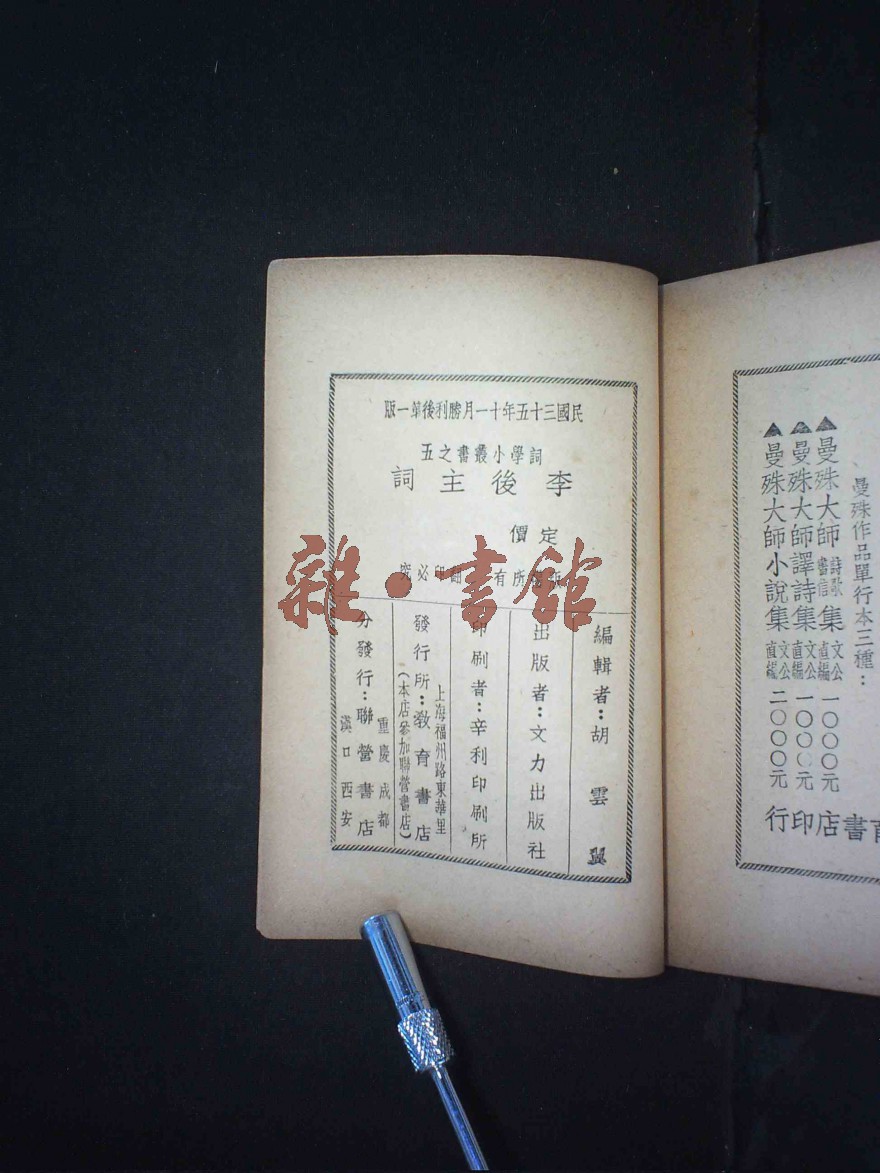 民國三十五年十一月勝利後第一版
詞學小叢書之五
李後主詞
定價
所有 翻印必究
編輯者：胡雲翼
出版者：文力出版社
印刷者：辛利印刷所
上海福州路東華里
發行所：教育書店
（本店參加聯營書店）
重慶成都
分發行：聯營書店
漢口西安
雜·書館
曼殊作品單行本三種：
▲曼殊大師詩歌書信集 文公直編 一〇〇〇元
▲曼殊大師譯詩集 文公直編 一〇〇〇元
▲曼殊大師小說集 文公直編 二〇〇〇元
育書店印行